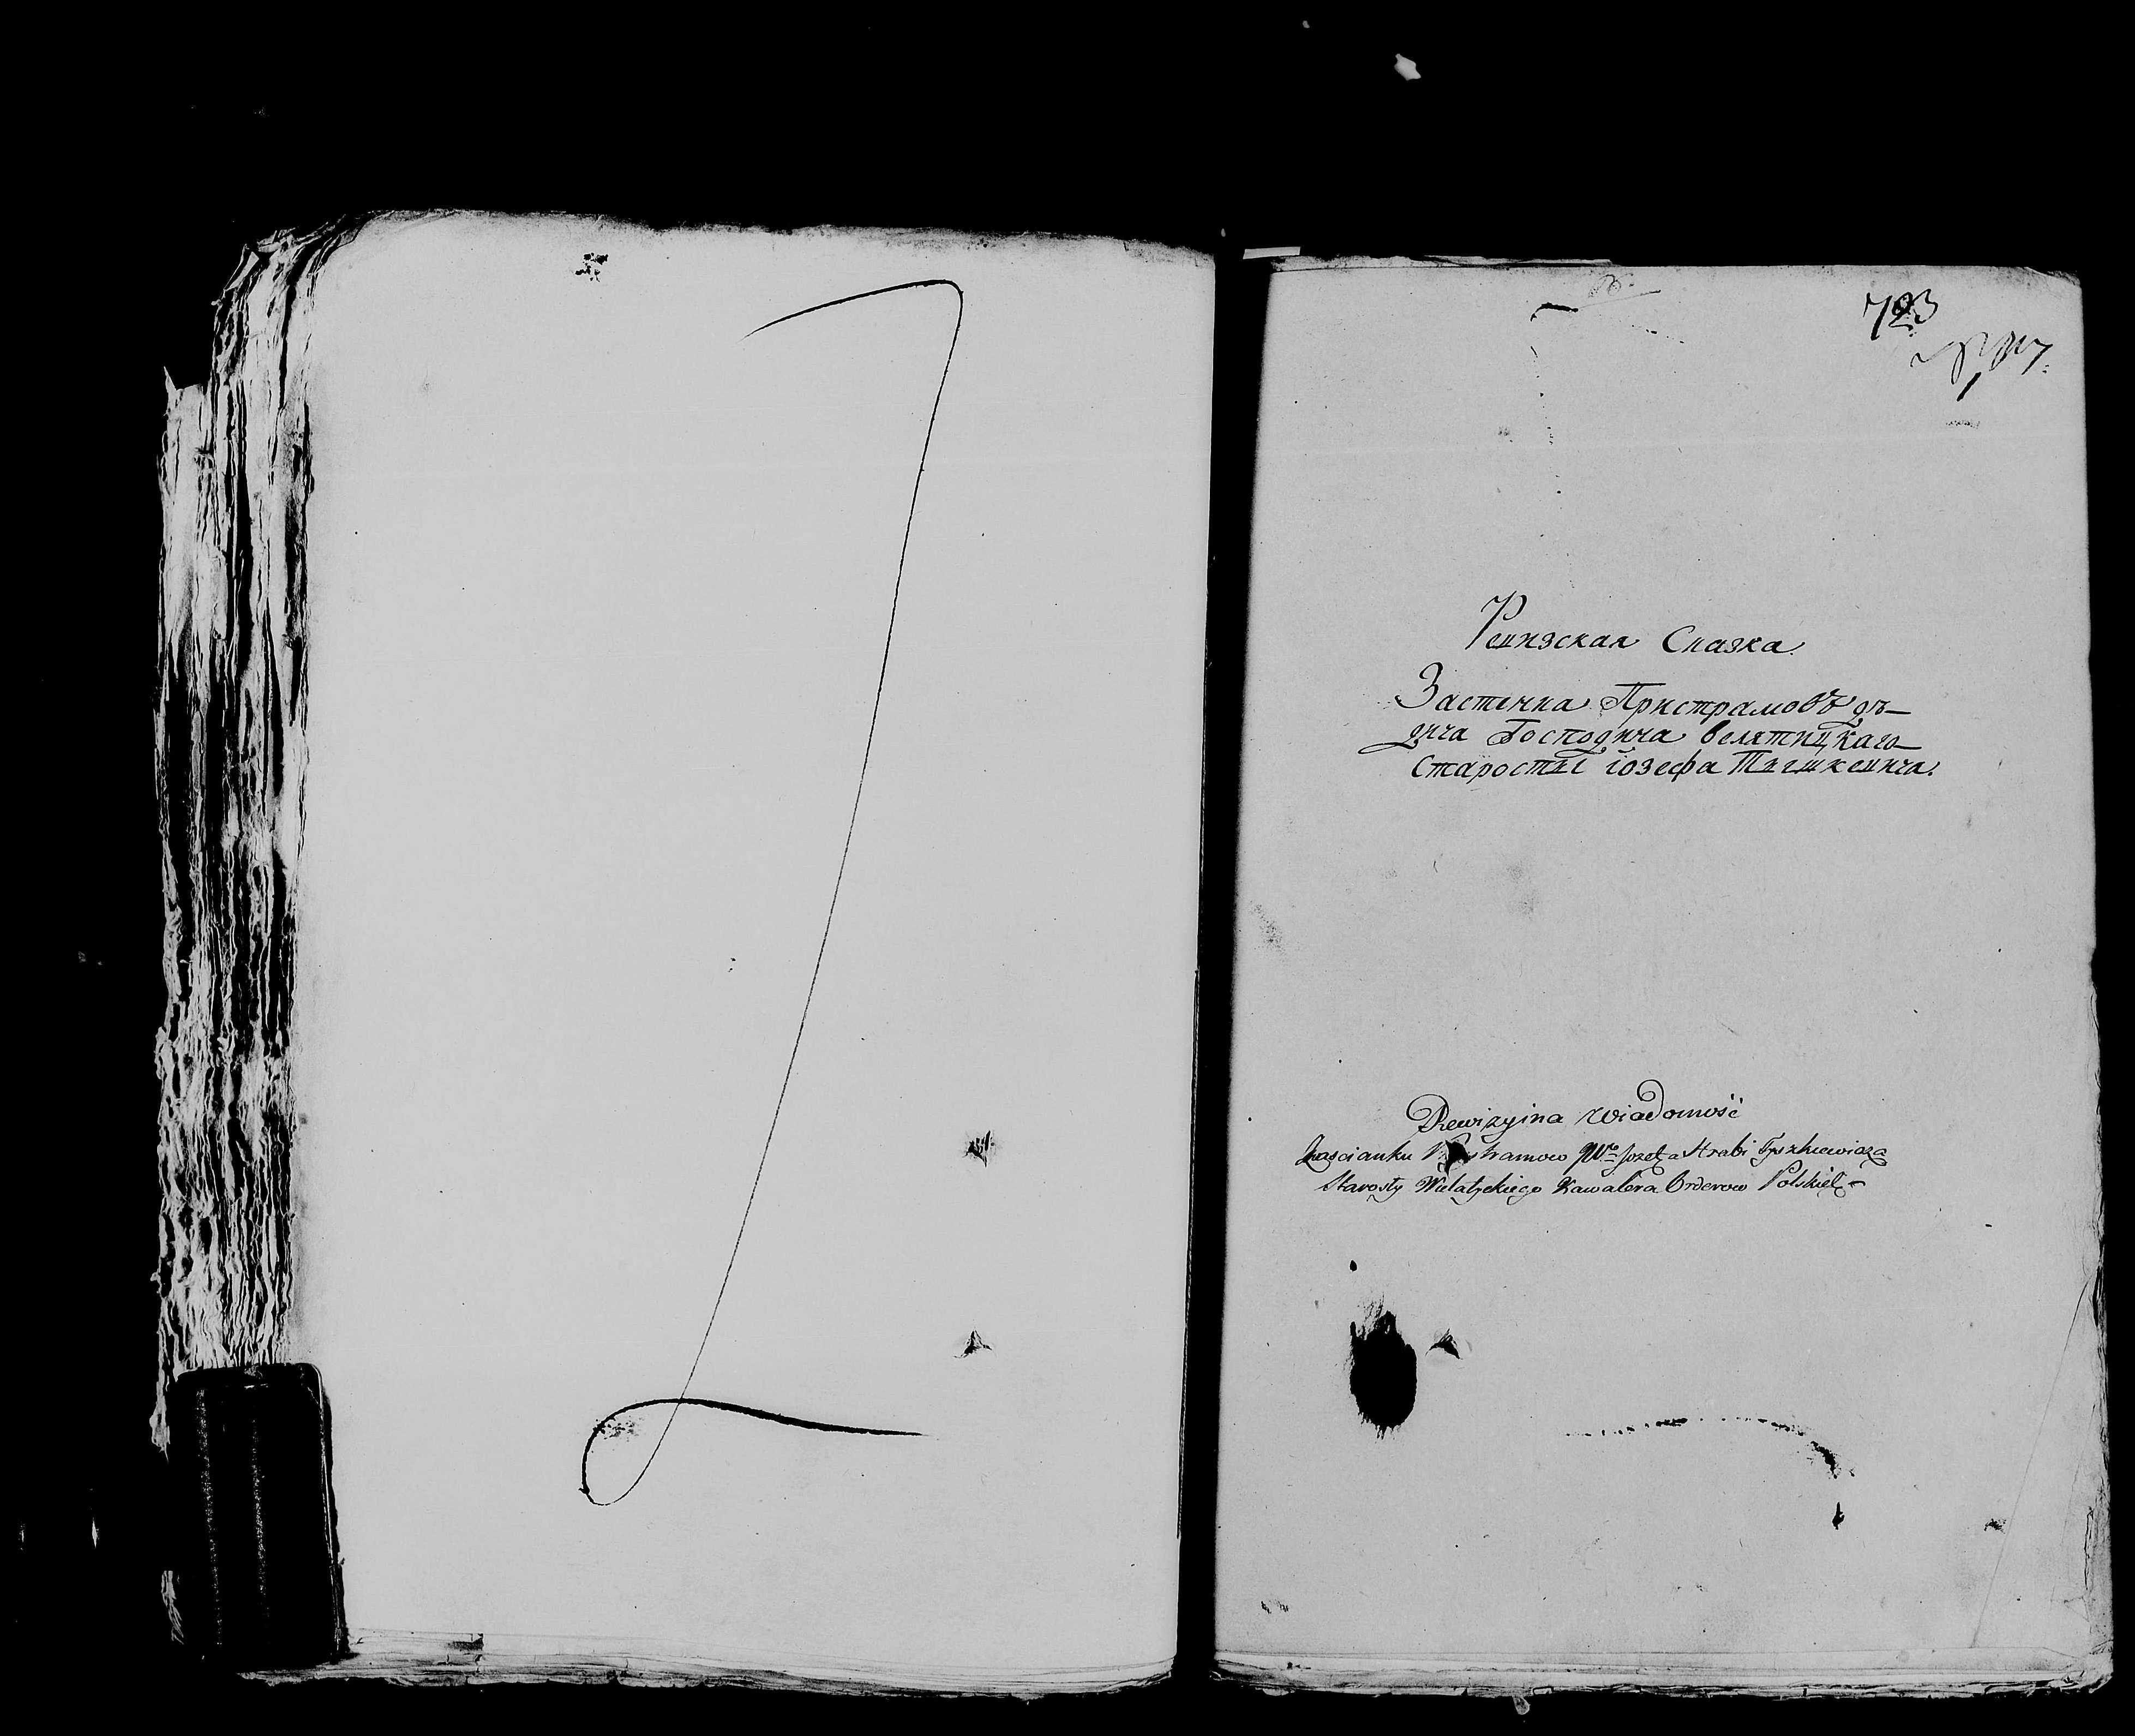 723
Ревизская Сказка
Застенка Пристрамовъ дѣ-
дича Господина велятицкаго
Старосты іозефа Тышкевича.
Rewizyina wiadomość
Zascianku Jozefa Hrabi Tyszkiewicza
Starosty Wielatyckiego Kawalera Orderow Polskich